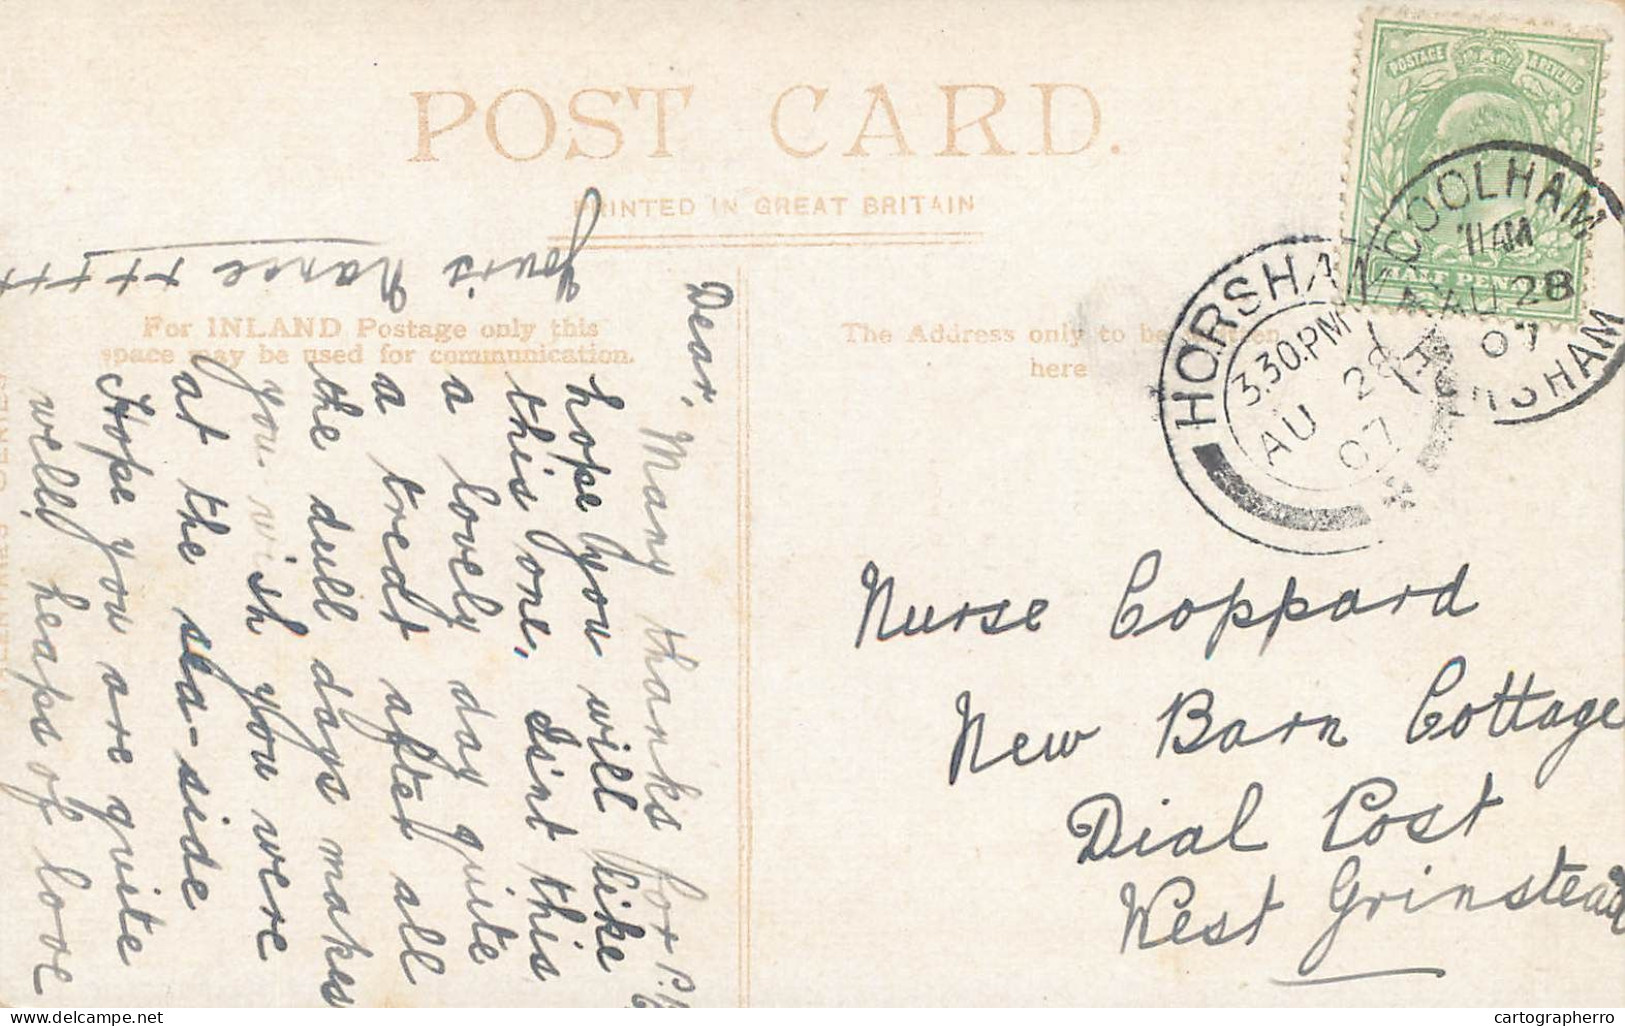 POST CARD.
PRINTED IN GREAT BRITAIN
For INLAND Postage only this
space may be used for communication.
The Address only to be
here
POSTAGE & REVENUE
HALF PENNY
COOLHAM
11 AM
AU 28
07
HORSHAM
HORSHAM
3.30.PM
AU 28
07
Dear,
Many thanks for P.
hope you will like
this one. Isint this
a lovely day quite
a tredt after all
the dull days makes
you wish you were
at the sea-side
Hope you are quite
well, heaps of love
Yours
Nance
Nurse Coppard
New Barn Cottage
Dial Post
West Grinstead
SERIES
delcampe.net
cartographerro